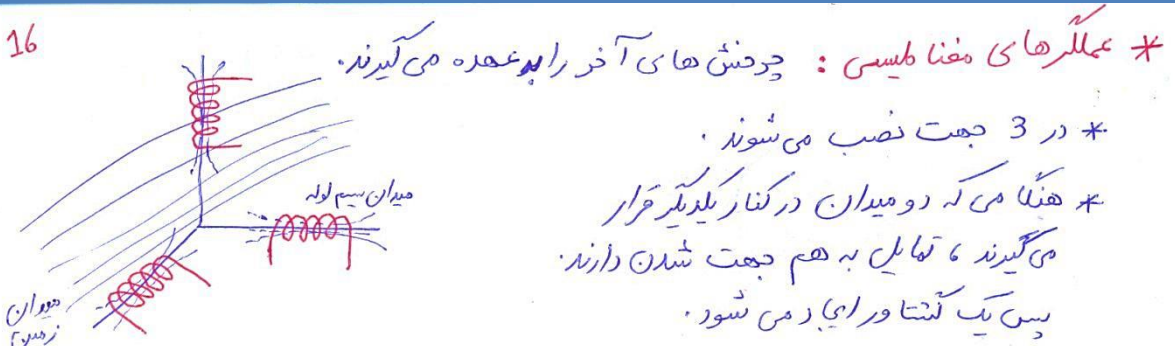 16
* عملگرهای مغناطیسی : چرخش های آخر را بر عهده می گیرند.
* در 3 جهت نصب می شوند .
* هنگامی که دو میدان در کنار یکدیگر قرار
می گیرند ، تمایل به هم جهت شدن دارند.
پس یک گشتاور ایجاد می شود.
میدان سیم لوله
میدان
زمین